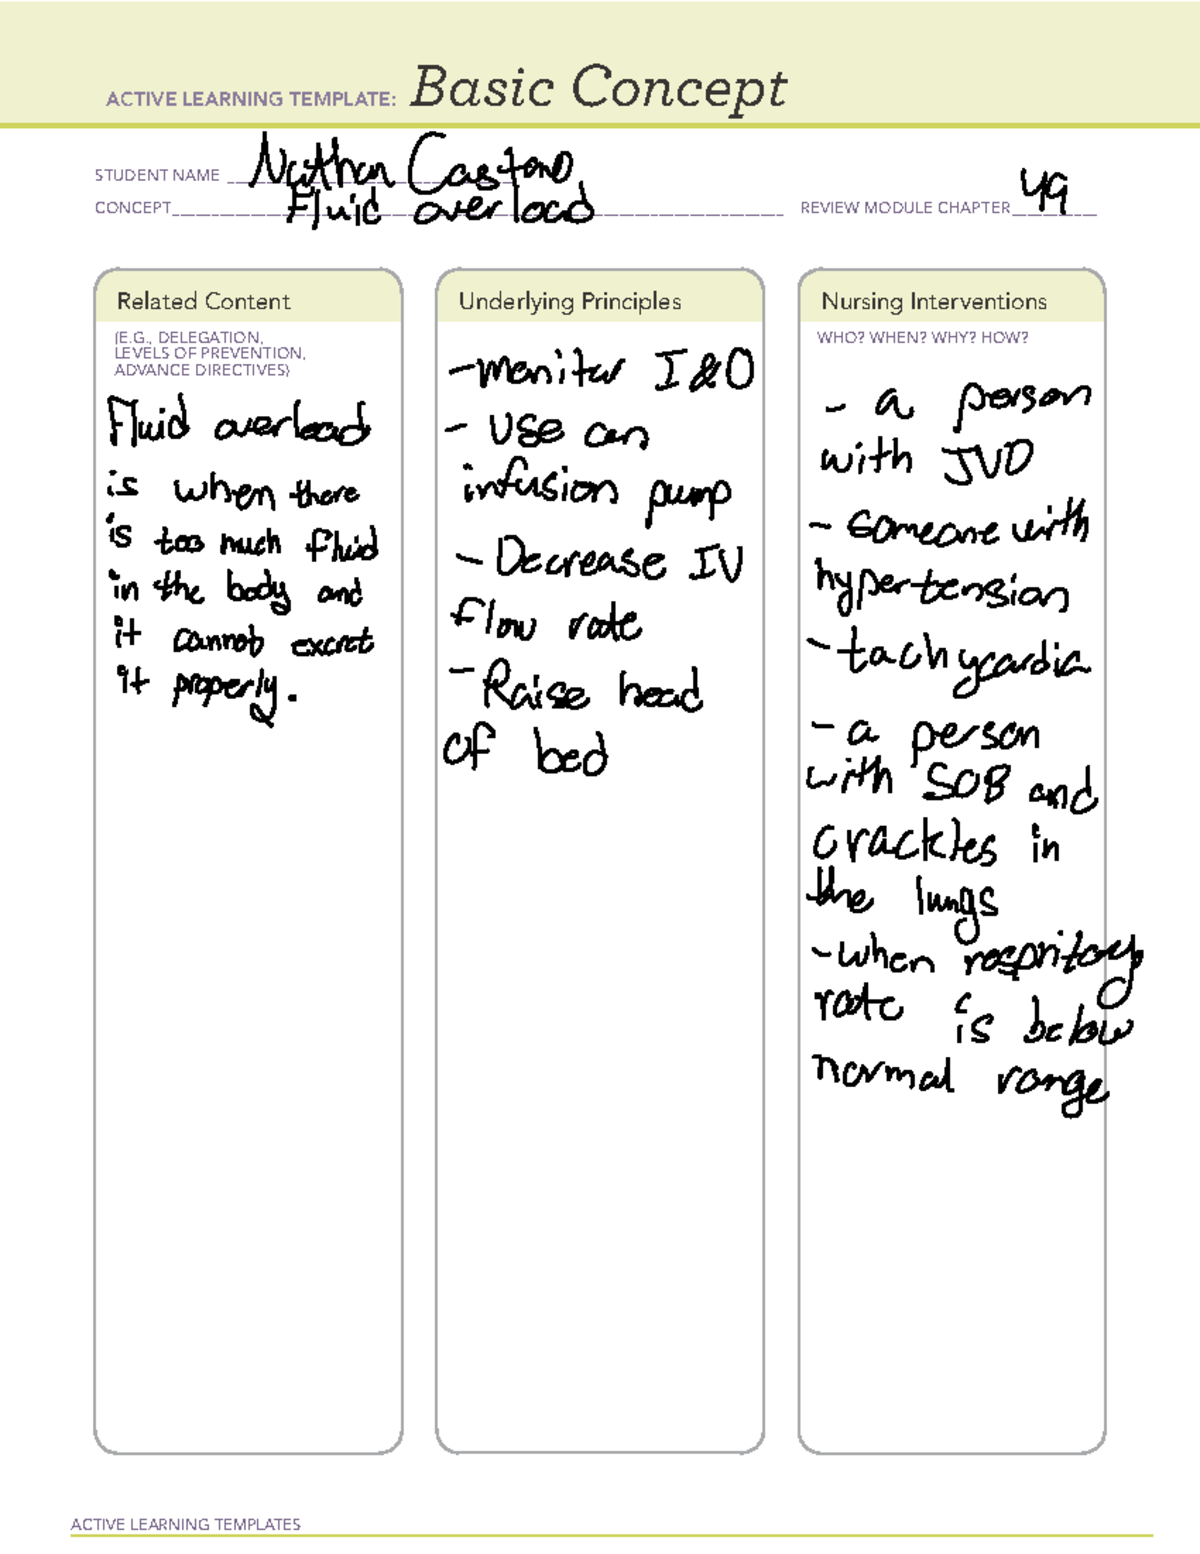 ACTIVE LEARNING TEMPLATE: Basic Concept
STUDENT NAME Nathan Castano
CONCEPT Fluid overload REVIEW MODULE CHAPTER 49
Related Content
(E.G., DELEGATION,
LEVELS OF PREVENTION,
ADVANCE DIRECTIVES)
Fluid overload
is when there
is too much fluid
in the body and
it cannot excret
it properly.
Underlying Principles
-monitor I&O
- use can
infusion pump
- Decrease IV
flow rate
- Raise head
of bed
Nursing Interventions
WHO? WHEN? WHY? HOW?
- a person
with JVD
- someone with
hypertension
- tachycardia
- a person
with SOB and
crackles in
the lungs
- when respritory
rate is below
normal range
ACTIVE LEARNING TEMPLATES